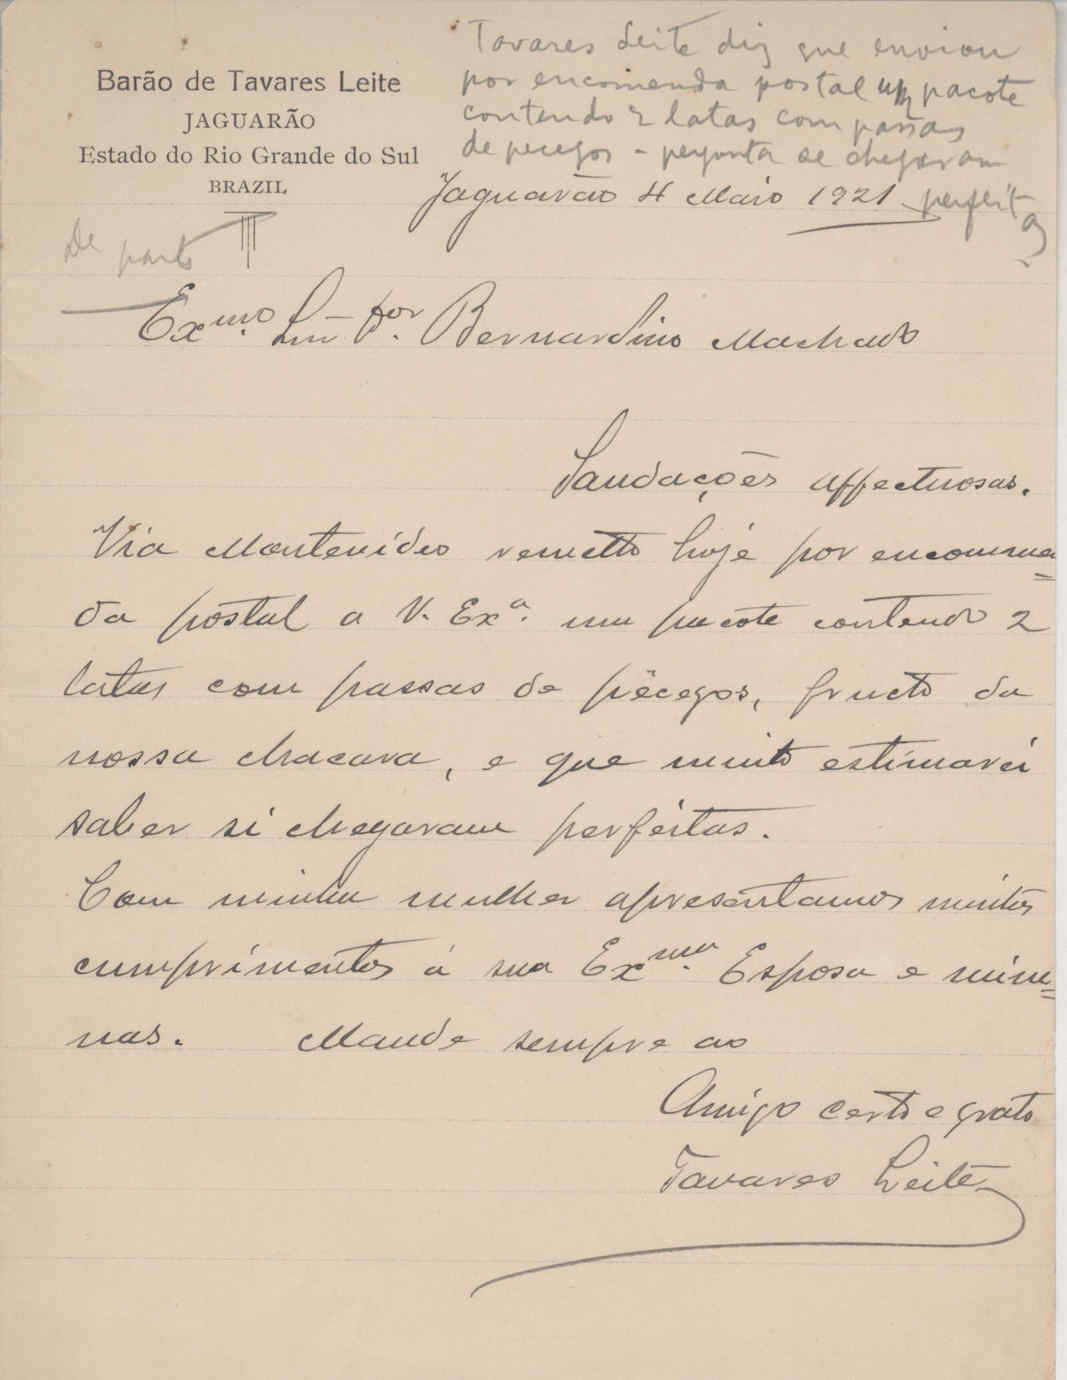 Barão de Tavares Leite
JAGUARÃO
Estado do Rio Grande do Sul
BRAZIL
Tavares Leite diz que enviou
por encomenda postal um pacote
contendo 2 latas com passas
de pecegos - pergunta se chegaram
perfeitas
Jaguarão 4 Maio 1921
De parte
Exmo. Snr. Dor. Bernardino Machado
Saudações affectuosas.
Via Montevideo remetto hoje por encommen=
da postal a V. Exa. um pacote contendo 2
latas com passas de pêcegos, fructo da
nossa chacara, e que muito estimarei
saber si chegaram perfeitas.
Com minha mulher apresentamos muitos
cumprimentos á sua Exma. Esposa e mini=
nas. Mande sempre ao
Amigo certo e grato
Tavares Leite